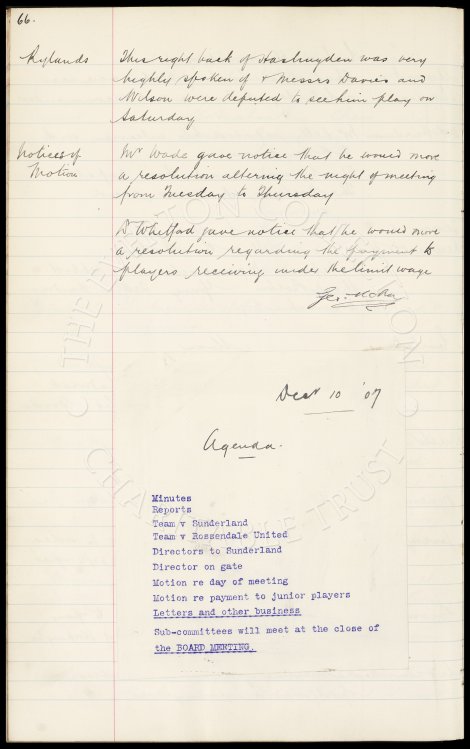 66.
Rylands This right back of Haslingden was very
highly spoken of & Messrs Davies and
Wilson were deputed to see him play on
Saturday
Notices of Mr Wade gave notice that he would move
Motion a resolution altering the night of meeting
from Tuesday to Thursday
Dr Whitford gave notice that he would move
a resolution regarding the payment to
players receiving under the limit wage
Decr 10 '07
Agenda.
Minutes
Reports
Team v Sunderland
Team v Rossendale United
Directors to Sunderland
Director on gate
Motion re day of meeting
Motion re payment to junior players
Letters and other business
Sub-committees will meet at the close of
the BOARD MEETING.
THE EVERTON COLLECTION
CHARITABLE TRUST